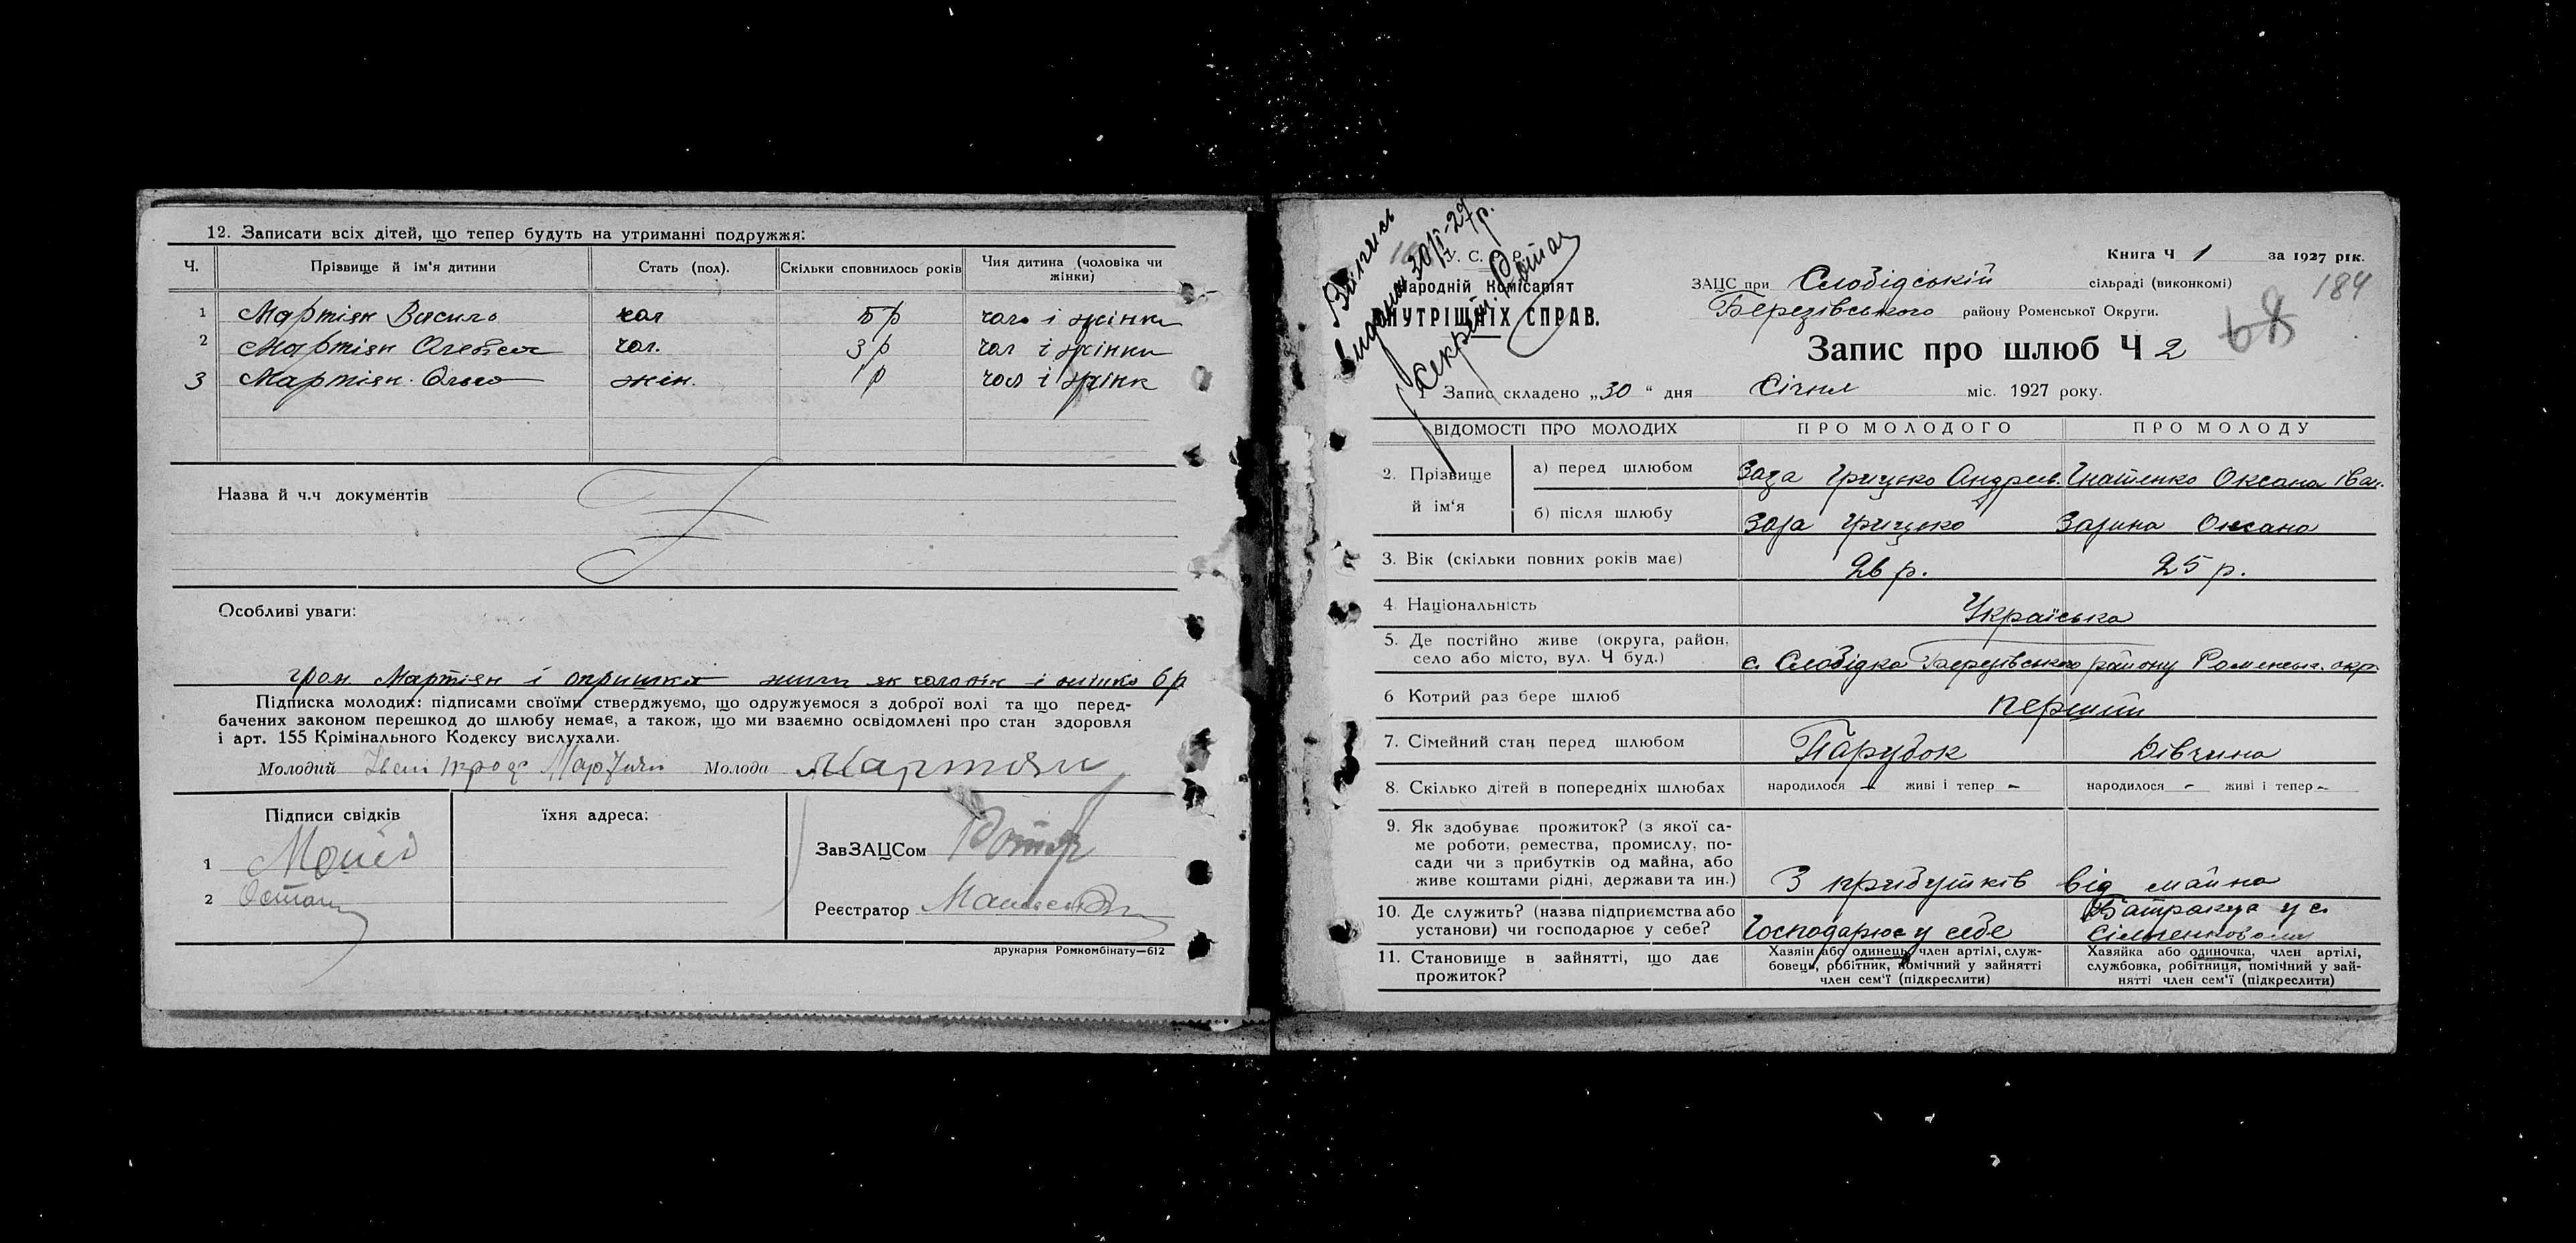 12. Записати всіх дітей, що тепер будуть на утриманні подружжя:
Ч. Прізвище й ім'я дитини Стать (пол). Скільки сповнилось років Чия дитина (чоловіка чи жінки)
1 Мартіян Василь чол 5 р чол і жінки
2 Мартіян Олексій чол. 3 р чол і жінки
3 Мартіян Ольга жін. 1 р чол і жінк
Назва й ч.ч документів
Особливі уваги:
гром. Мартіян і жили як чоловік і жінка 6 р
Підписка молодих: підписами своїми стверджуємо, що одружуємося з доброї волі та що перед-
бачених законом перешкод до шлюбу немає, а також, що ми взаємно освідомлені про стан здоровля
і арт. 155 Крімінального Кодексу вислухали.
Молодий Молода Мартіян
Підписи свідків їхня адреса:
1
2
ЗавЗАЦСом
Реєстратор
друкарня Ромкомбінату—612
Випись
видана 30/I-27 р.
Секрет.
У. С. Р. Р.
Народній Комісаріят
ВНУТРІШНІХ СПРАВ.
Книга Ч 1 за 1927 рік.
184
ЗАЦС при Слобідській сільраді (виконкомі)
Березівського району Роменської Округи.
68
Запис про шлюб Ч 2
1 Запис складено „30“ дня Січня міс. 1927 року.
ВІДОМОСТІ ПРО МОЛОДИХ ПРО МОЛОДОГО ПРО МОЛОДУ
2. Прізвище й ім'я
а) перед шлюбом Заза Грицько Андреев. Гнатенко Оксана Іван.
б) після шлюбу Заза Грицько Зазина Оксана
3. Вік (скільки повних років має) 26 р. 25 р.
4. Національність Українська
5. Де постійно живе (округа, район,
село або місто, вул. Ч буд.) с. Слобідка Березівського району Роменськ. окр.
6 Котрий раз бере шлюб перший
7. Сімейний стан перед шлюбом Парубок Дівчина
8. Скілько дітей в попередніх шлюбах народилося – живі і тепер – народилося – живі і тепер –
9. Як здобуває прожиток? (з якої са-
ме роботи, ремества, промислу, по-
сади чи з прибутків од майна, або
живе коштами рідні, держави та ин.) З прибутків від майна
10. Де служить? (назва підприємства або
установи) чи господарює у себе? Господарює у себе Батракує у с.
11. Становище в зайнятті, що дає
прожиток?
Хазяін або одинець, член артілі, служ-
бовець, робітник, помічний у зайнятті
член сем'ї (підкреслити)
Хазяйка або одиночка, член артілі,
службовка, робітниця, помічний у зай-
нятті член сем'ї (підкреслити)